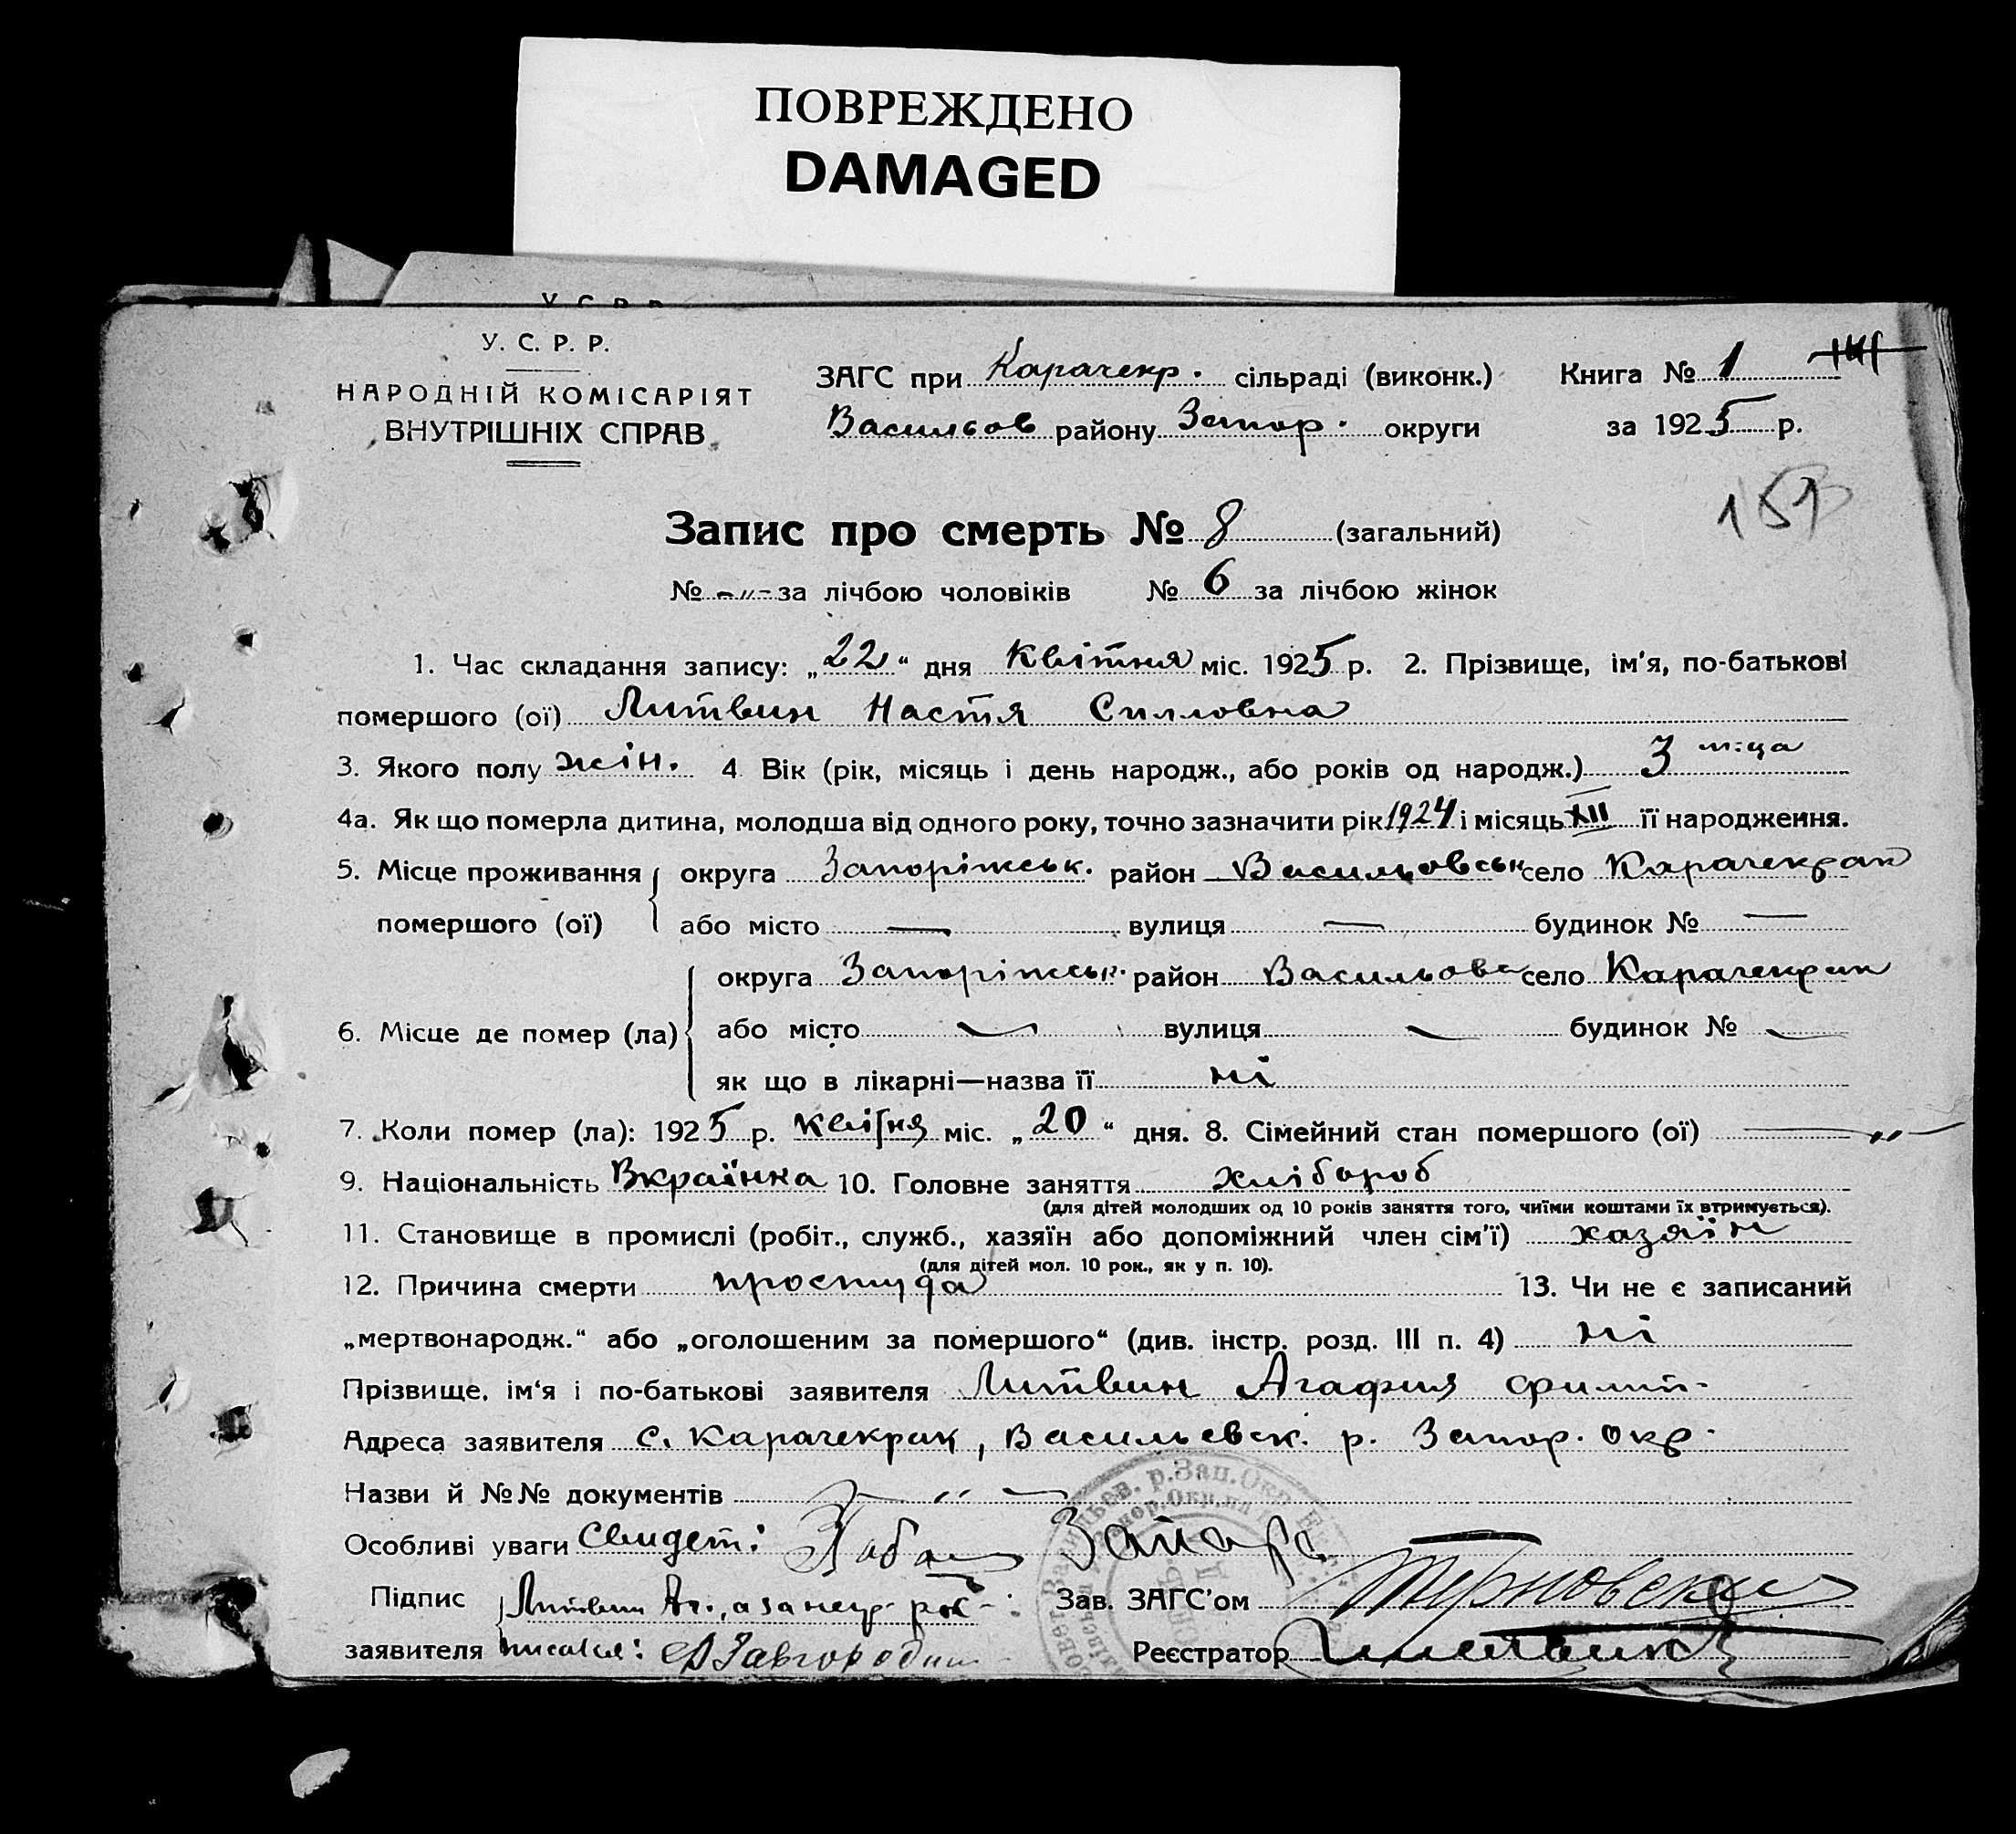 ПОВРЕЖДЕНО
DAMAGED
У. С. Р. Р.
У. С. Р. Р.
НАРОДНІЙ КОМІСАРІЯТ
ВНУТРІШНІХ СПРАВ
ЗАГС при Карачекр. сільраді (виконк.)
Васильов району Запор. округи
Книга № 1
за 1925 р.
159
Запис про смерть № 8 (загальний)
№ -„- за лічбою чоловіків № 6 за лічбою жінок
1. Час складання запису: „22“ дня Квітня міс. 1925 р. 2. Прізвище, ім'я, по-батькові
помершого (ої) Литвин Настя Силловна
3. Якого полу жін. 4 Вік (рік, місяць і день народж., або років од народж.) 3 м-ця
4а. Як що померла дитина, молодша від одного року, точно зазначити рік 1924 і місяць XII її народження.
5. Місце проживання округа Запоріжськ. район Васильовськ село Карачекрак
помершого (ої) або місто — вулиця — будинок № —
округа Запоріжськ. район Васильовс село Карачекрак
6. Місце де помер (ла) або місто — вулиця — будинок № —
як що в лікарні—назва її ні
7. Коли помер (ла): 1925 р. квітня міс. „20“ дня. 8. Сімейний стан помершого (ої) — „ —
9. Національність Вкраїнка 10. Головне заняття хлібороб
(для дітей молодших од 10 років заняття того, чиїми коштами їх втримується).
11. Становище в промислі (робіт., служб., хазяїн або допоміжний член сім'ї) хазяїн
(для дітей мол. 10 рок., як у п. 10).
12. Причина смерти простуда 13. Чи не є записаний
„мертвонародж.“ або „оголошеним за помершого“ (див. інстр. розд. III п. 4) ні
Прізвище, ім'я і по-батькові заявителя Литвин Агафия Филип-
Адреса заявителя с. Карачекрак, Васильевск. р. Запор. Окр.
Назви й №№ документів — „ —
Особливі уваги Свидет:
Підпис Литвин Аг., а за неур. рос- Зав. ЗАГС'ом
заявителя писався: Завгородн Реєстратор